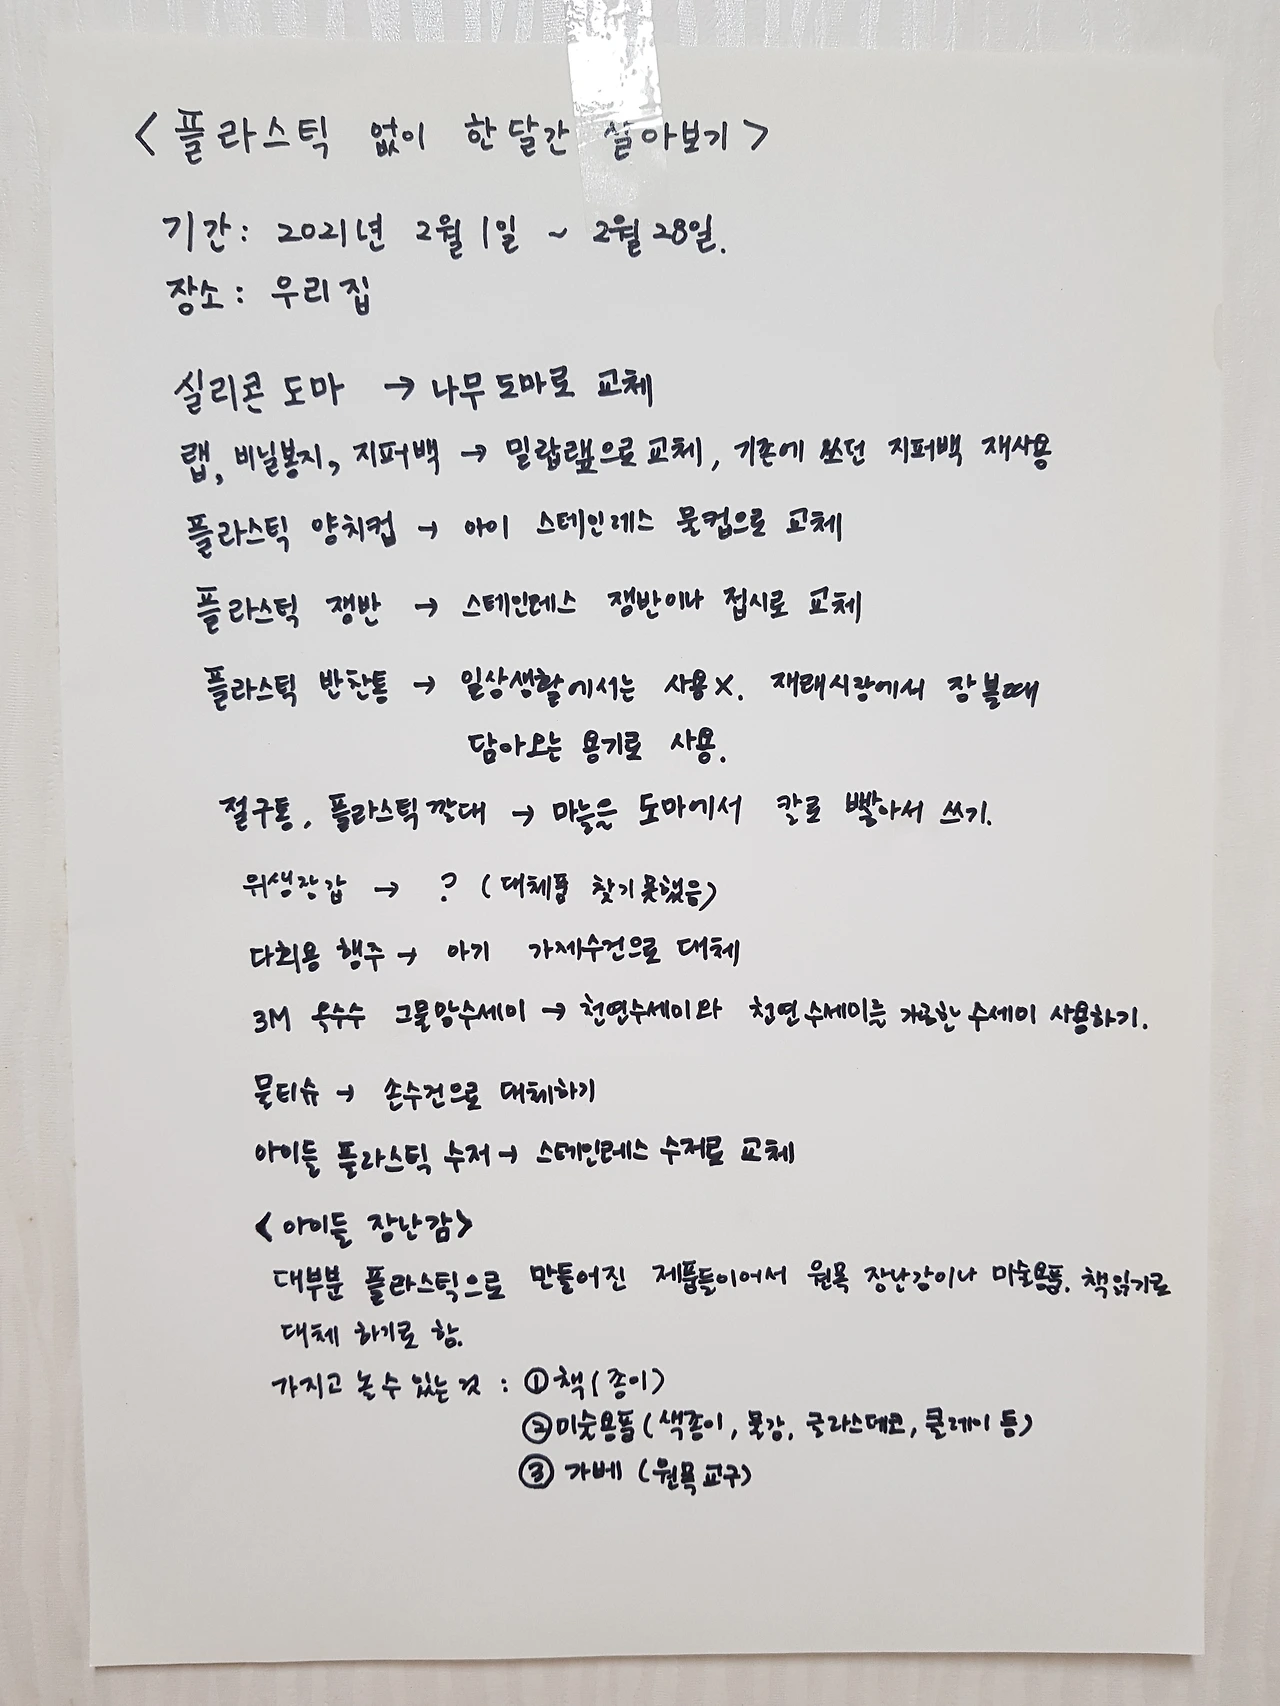 <플라스틱 없이 한달간 살아보기>
기간: 2021년 2월 1일 ~ 2월 28일.
장소: 우리집
실리콘 도마 → 나무도마로 교체
랩, 비닐봉지, 지퍼백 → 밀랍랲으로 교체, 기존에 쓰던 지퍼백 재사용
플라스틱 양치컵 → 아이 스테인레스 물컵으로 교체
플라스틱 쟁반 → 스테인레스 쟁반이나 접시로 교체
플라스틱 반찬통 → 일상생활에서는 사용X. 재래시장에서 장볼때
담아오는 용기로 사용.
절구통, 플라스틱깔대 → 마늘은 도마에서 칼로 빻아서 쓰기.
위생장갑 → ? (대체품 찾기못했음)
다회용 행주 → 아기 가제수건으로 대체
3M 옥수수 그물망수세미 → 천연수세미와 천연수세미를 가공한 수세미 사용하기.
물티슈 → 손수건으로 대체하기
아이들 플라스틱 수저 → 스테인레스 수저로 교체
<아이들 장난감>
대부분 플라스틱으로 만들어진 제품들이어서 원목 장난감이나 미술용품, 책읽기로
대체 하기로 함.
가지고 놀수있는것 : ① 책(종이)
② 미술용품(색종이, 물감, 글라스데코, 클레이 등)
③ 가베 (원목교구)